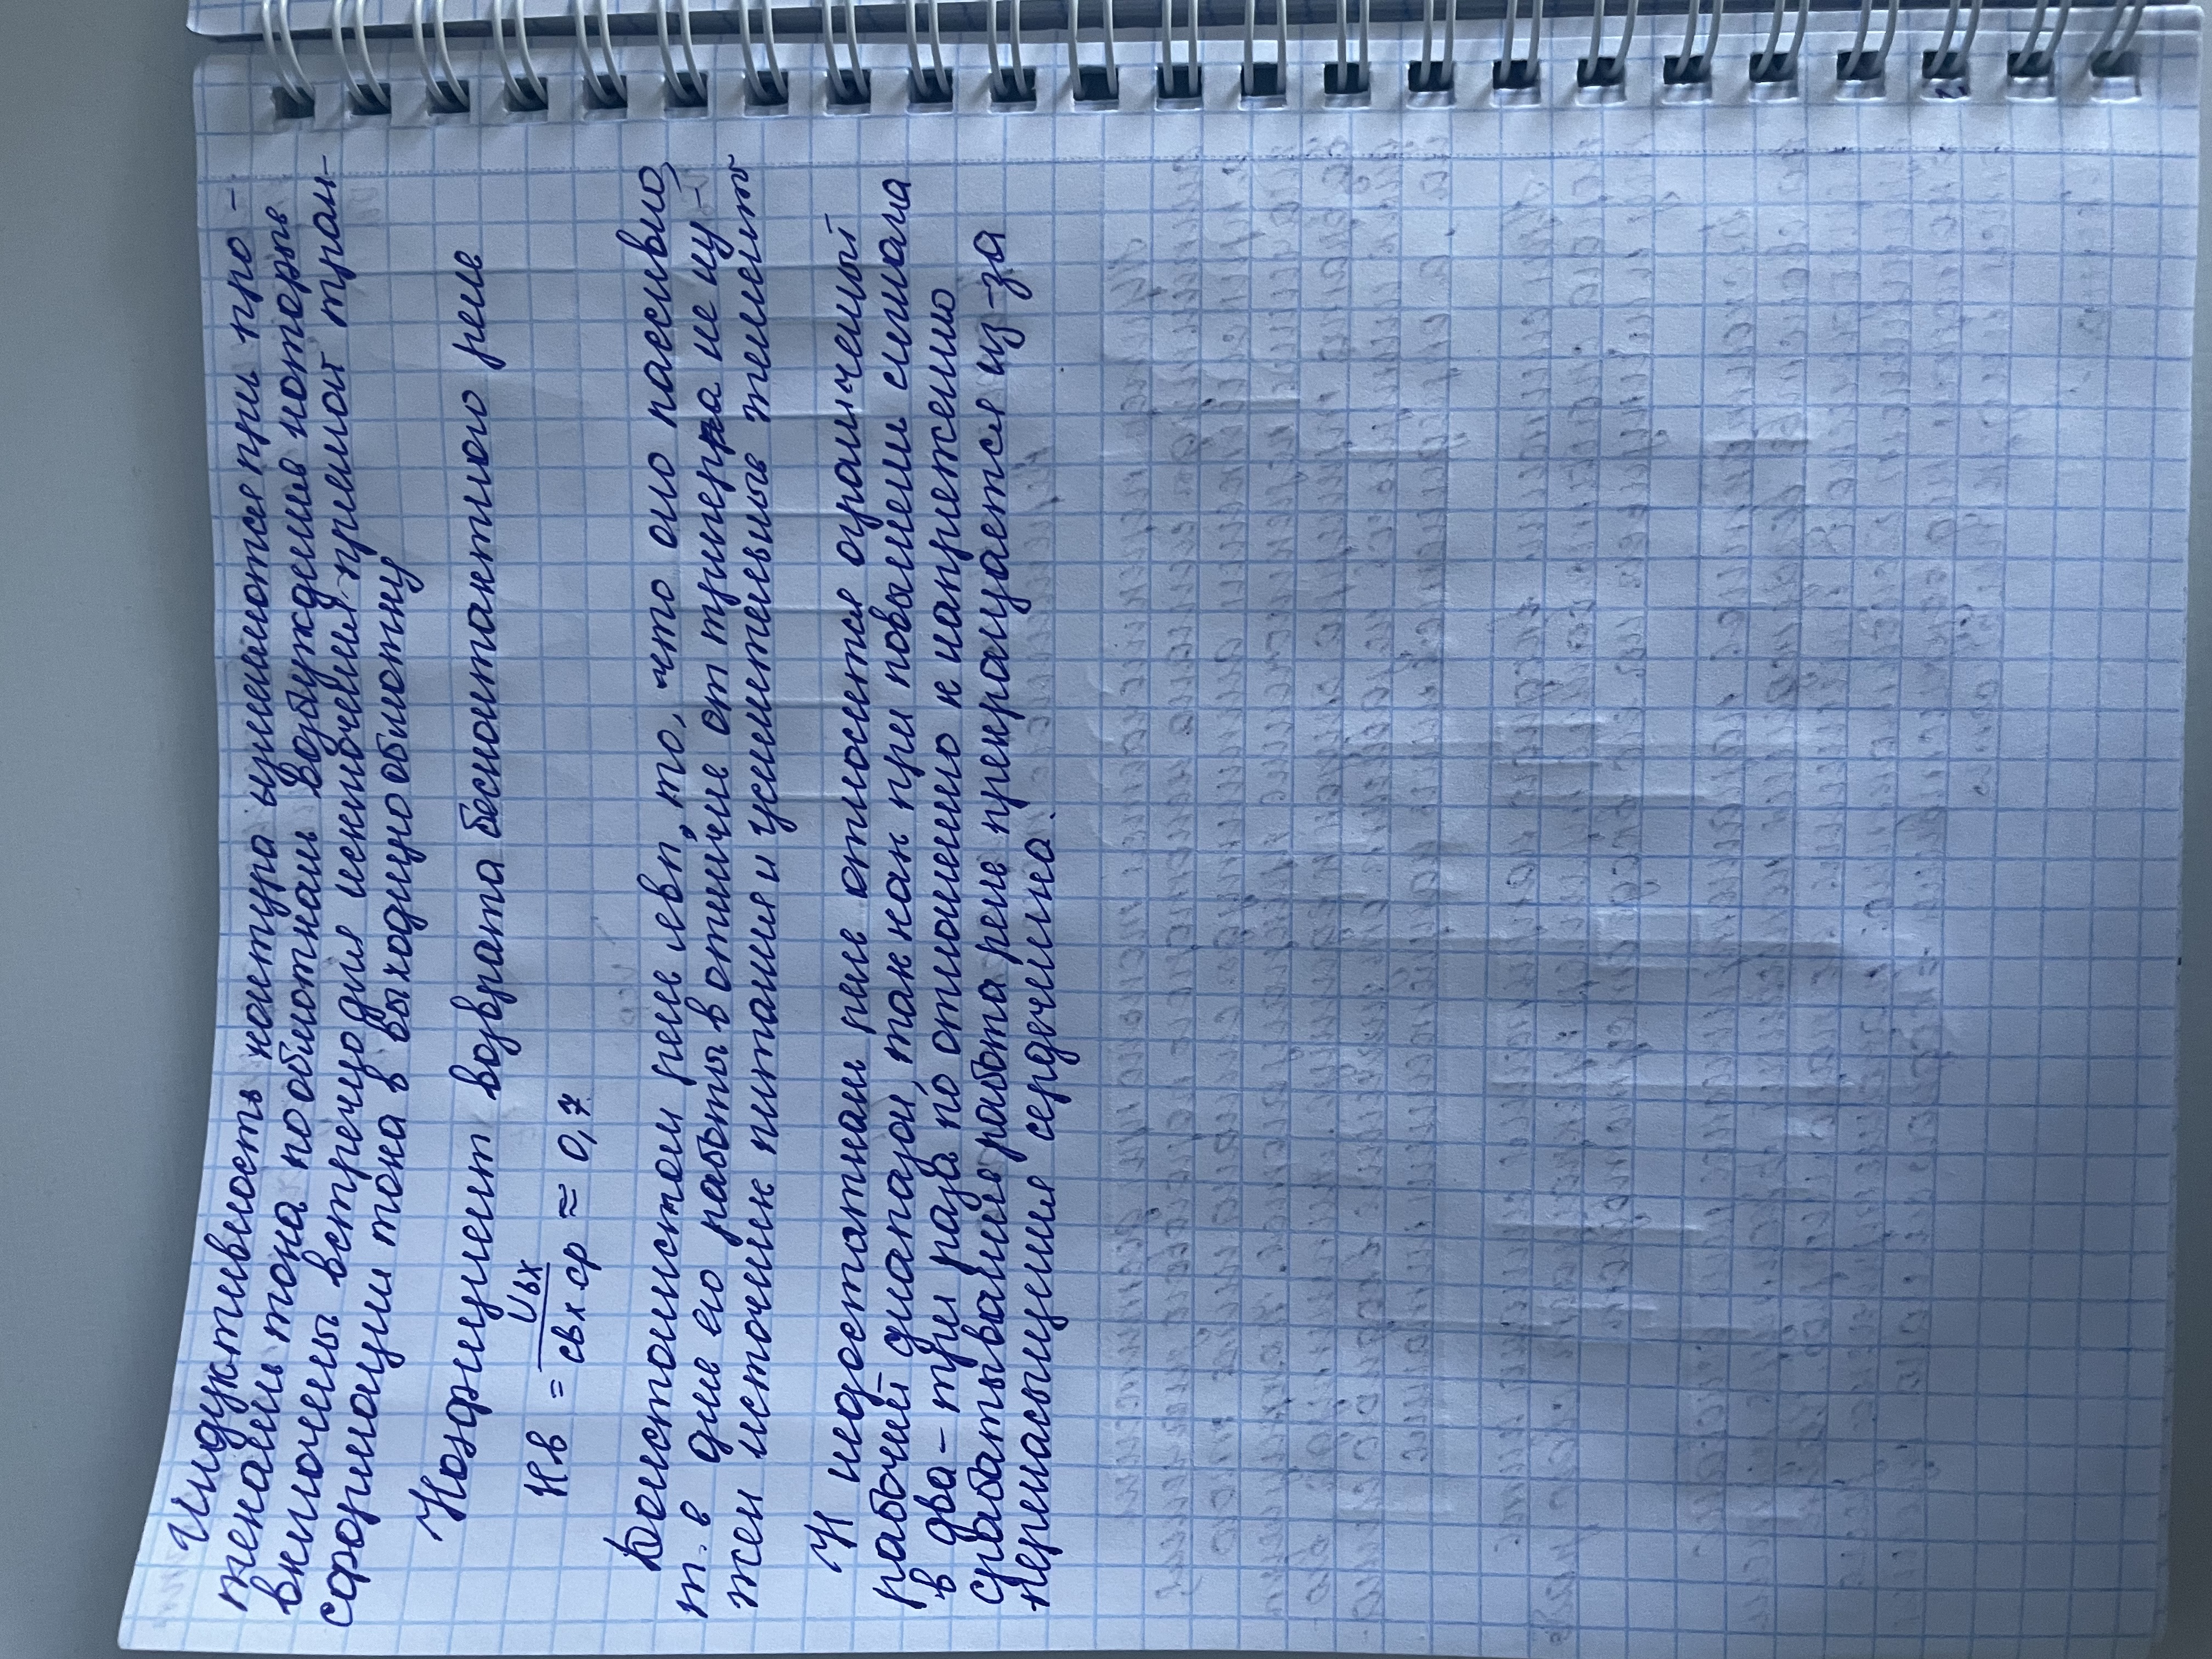 Индуктивность контура изменяются при про-
текании тока по обмоткам возбуждения которые
включены встречно для исключения прямой тран-
сформации тока в выходную обмотку
Коэфициент возврата бесконтактного реле
Кв = Uвх / Uвх ср ≈ 0,7
Достоинством реле явл, то, что оно пассивно,
т. в для его работы в отличие от тригера не ну-
жен источник питания и усилительные тelement
К недостаткам реле относится ограниченый
рабочий диапазон, так как при повышении сигнала
в два-три раза по отношению к напряжению
срабатывания работа реле прекращается из-за
перенасыщения сердечника.